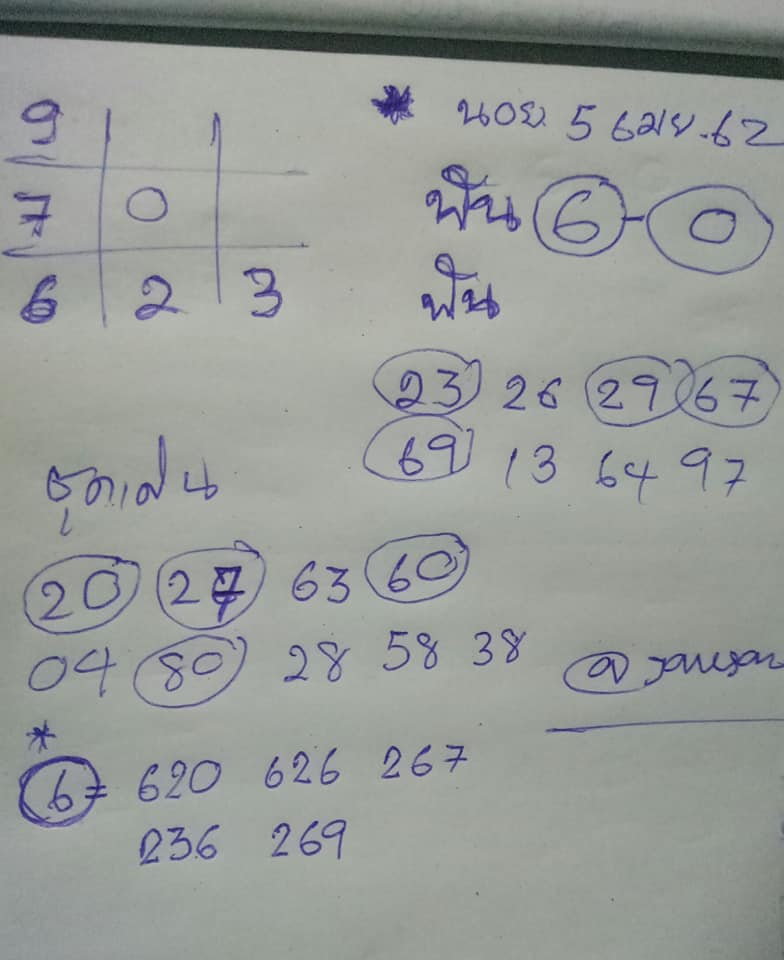 9
7 0
6 2 3
* นอย. 5 เมย.62
ฟัน 6-0
ฟัน
23 26 29 67
69 13 64 97
ชุดเล่น
20 27 63 60
04 80 28 58 38
@
*
6= 620 626 267
236 269